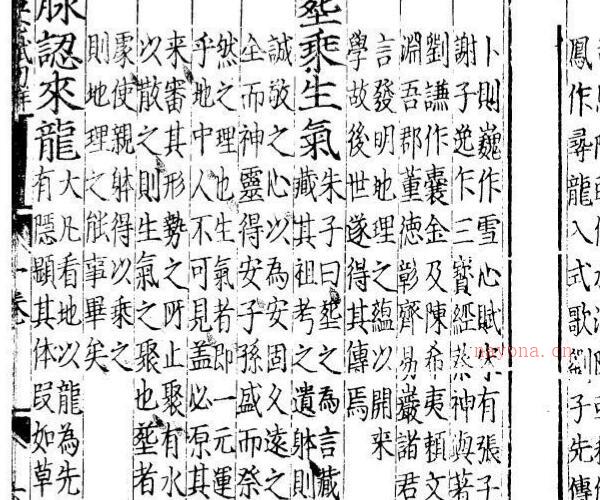 鳳作尋龍入式歌劉子先傳
卜則巍作雪心賦宋有張子
謝子逸作三寳經蔡神與著
劉謙作囊金及陳希夷賴文
淵吾郡董德彰齊易巖諸君
言發明地理之蘊以開來
學故後世遂得其傳焉
塟乘生氣
朱子曰塟之為言藏
藏其祖考之遺躰則
誠敬之心以為安固久遠之
全而神靈得安子孫盛而祭
然之理也生氣者即一元運
乎地中人不可見盖必原其
來審其形勢之所止聚有水
以散之則生氣之聚也塟者
使親躰得以乘之
則地理之能事畢矣
脉認來龍
大凡看地以龍為先
有隱顯其体段如草
一卷
nayona.cn